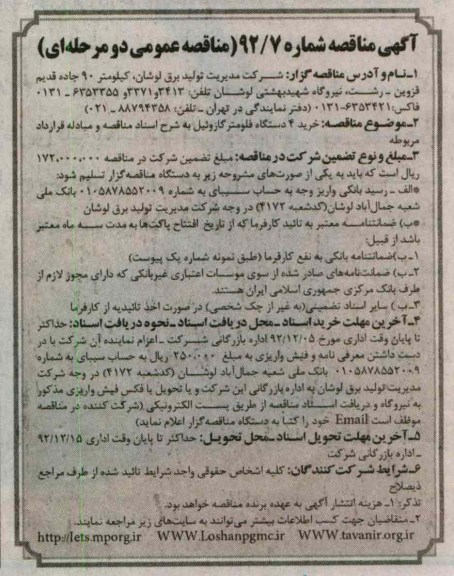 آگهی مناقصه شماره ۹۲/۷ (مناقصه عمومی دو مرحله‌ای)
۱ـ نام و آدرس مناقصه گزار: شرکت مدیریت تولید برق لوشان، کیلومتر ۹۰ جاده قدیم
قزوین ـ رشت، نیروگاه شهید بهشتی لوشان تلفن: ۳۴۱۳و۳۳۷۱و ۶۳۵۳۳۵۵ ـ ۰۱۳۱
فاکس: ۶۳۵۳۴۲۱-۰۱۳۱ (دفتر نمایندگی در تهران ـ تلفن: ۸۸۷۹۴۳۵۸ ـ ۰۲۱)
۲ـ موضوع مناقصه: خرید ۴ دستگاه فلومتر گازوئیل به شرح اسناد مناقصه و مبادله قرارداد
مربوطه
۳ـ مبلغ و نوع تضمین شرکت در مناقصه: مبلغ تضمین شرکت در مناقصه ۱۷۲،۰۰۰،۰۰۰
ریال است که باید به یکی از صورت‌های مشروحه زیر به دستگاه مناقصه‌گزار تسلیم شود:
*الف ـ رسید بانکی واریز وجه به حساب سیبای به شماره ۰۱۰۵۸۷۸۵۵۲۰۰۹ بانک ملی
شعبه جمال‌آباد لوشان (کدشعبه ۴۱۷۲) در وجه شرکت مدیریت تولید برق لوشان
*ب) ضمانتنامه معتبر به تائید کارفرما که از تاریخ افتتاح پاکت‌ها به مدت سه ماه معتبر
باشد از قبیل:
۱ـ ب) ضمانتنامه بانکی به نفع کارفرما (طبق نمونه شماره یک پیوست)
۲ـ ب) ضمانت‌نامه‌های صادر شده از سوی موسسات اعتباری غیربانکی که دارای مجوز لازم از
طرف بانک مرکزی جمهوری اسلامی ایران هستند.
۳ـ ب) سایر اسناد تضمینی (به غیر از چک شخصی) در صورت اخذ تائیدیه از کارفرما
۴ـ آخرین مهلت خرید اسناد ـ محل دریافت اسناد ـ نحوه دریافت اسناد: حداکثر
تا پایان وقت اداری مورخ ۹۲/۱۲/۰۵ اداره بازرگانی شرکت ـ اعزام نماینده آن شرکت با در
دست داشتن معرفی نامه و فیش واریزی به مبلغ ۲۵۰،۰۰۰ ریال به حساب سیبای به شماره
۰۱۰۵۸۷۸۵۵۲۰۰۹ بانک ملی شعبه جمال‌آباد لوشان (کدشعبه ۴۱۷۲) در وجه شرکت
مدیریت تولید برق لوشان به اداره بازرگانی این شرکت و یا تحویل یا فکس فیش واریزی مذکور
به نیروگاه و دریافت اسناد مناقصه از طریق پست الکترونیکی (شرکت کننده در مناقصه
موظف است Email خود را کتباً به دستگاه مناقصه‌گزار اعلام نماید)
۵ـ آخرین مهلت تحویل اسناد ـ محل تحویل: حداکثر تا پایان وقت اداری ۹۲/۱۲/۱۵
ـ اداره بازرگانی شرکت
۶ـ شرایط شرکت کنندگان: کلیه اشخاص حقوقی واجد شرایط تائید شده از طرف مراجع
ذیصلاح
تذکر: ۱ـ هزینه انتشار آگهی به عهده برنده مناقصه خواهد بود.
۲ـ متقاضیان جهت کسب اطلاعات بیشتر می‌توانند به سایت‌های زیر مراجعه نمایند.
http://iets.mporg.ir WWW.Loshanpgmc.ir WWW.tavanir.org.ir